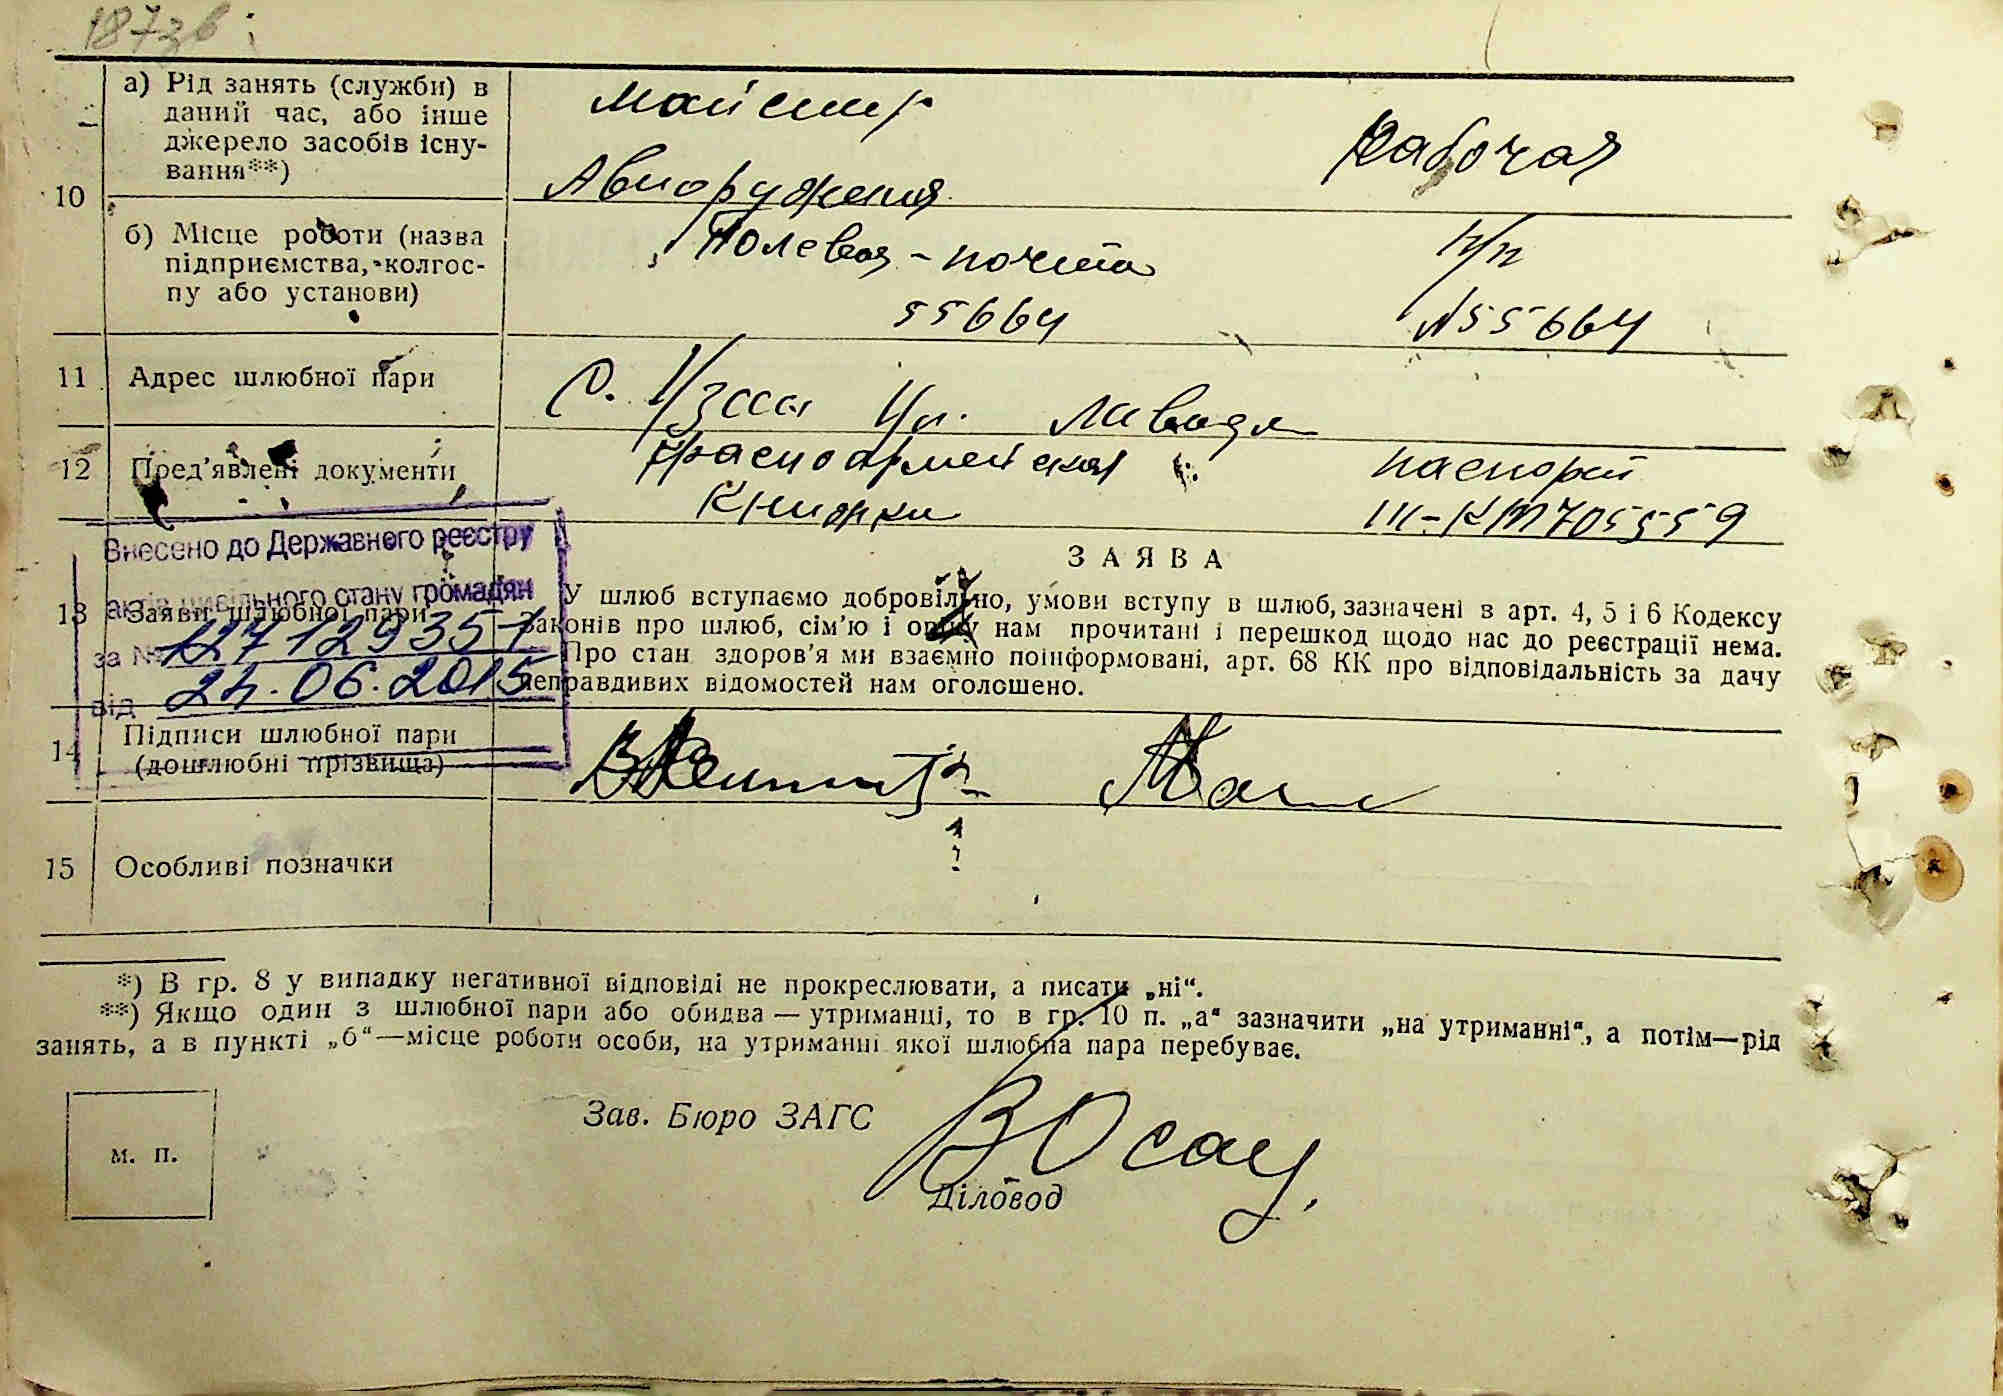 187зв
10
а) Рід занять (служби) в
даний час, або інше
джерело засобів існу-
вання**)
Майстер
Авиоружения
Рабочая
б) Місце роботи (назва
підприємства, колгос-
пу або установи)
Полевая - почта
55664
п/п
№55664
11 Адрес шлюбної пари
С. Ул.
12 Пред'явлені документи
Красноармейская
Книжка
паспорт
III-КМ 705559
Внесено до Державного реєстру
актів цивільного стану громадян
за № 127129357
від 24.06.2015
ЗАЯВА
13 Заяви шлюбної пари
У шлюб вступаємо добровільно, умови вступу в шлюб, зазначені в арт. 4, 5 і 6 Кодексу
законів про шлюб, сім'ю і опіку нам прочитані і перешкод щодо нас до реєстрації нема.
Про стан здоров'я ми взаємно поінформовані, арт. 68 КК про відповідальність за дачу
неправдивих відомостей нам оголошено.
14 Підписи шлюбної пари
(дошлюбні прізвища)
15 Особливі позначки
*) В гр. 8 у випадку негативної відповіді не прокреслювати, а писати „ні“.
**) Якщо один з шлюбної пари або обидва — утриманці, то в гр. 10 п. „а“ зазначити „на утриманні“, а потім—рід
занять, а в пункті „б“—місце роботи особи, на утриманні якої шлюбна пара перебуває.
Зав. Бюро ЗАГС
м. п.
Діловод